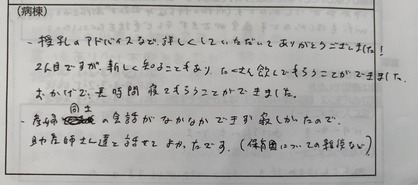 (病棟)
- 授乳のアドバイスなど、詳しくしていただいてありがとうございました!
2人目ですが、新しく知ることもあり、たくさん飲んでもらうことができました。
おかげで、長時間寝てもらうことができました。
- 産婦同士の会話がなかなかできず寂しかったので、
助産師さん達と話せてよかったです。(保育園についての雑談など)